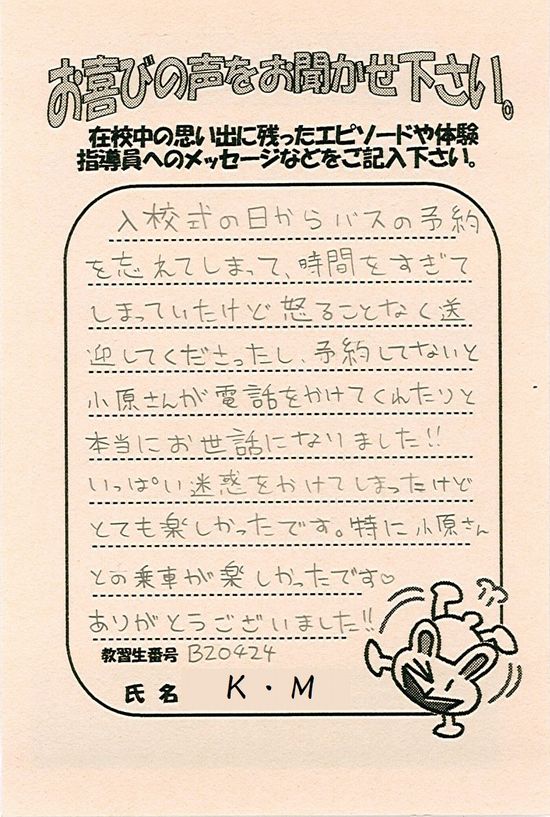 お喜びの声をお聞かせ下さい。
在校中の思い出に残ったエピソードや体験
指導員へのメッセージなどをご記入下さい。
入校式の日からバスの予約
を忘れてしまって、時間をすぎて
しまっていたけど怒ることなく送
迎してくださったし、予約してないと
小原さんが電話をかけてくれたりと
本当にお世話になりました!!
いっぱい迷惑をかけてしまったけど
とても楽しかったです。特に小原さん
との乗車が楽しかったです♡
ありがとうございました!!
教習生番号 B20424
氏名 K・M